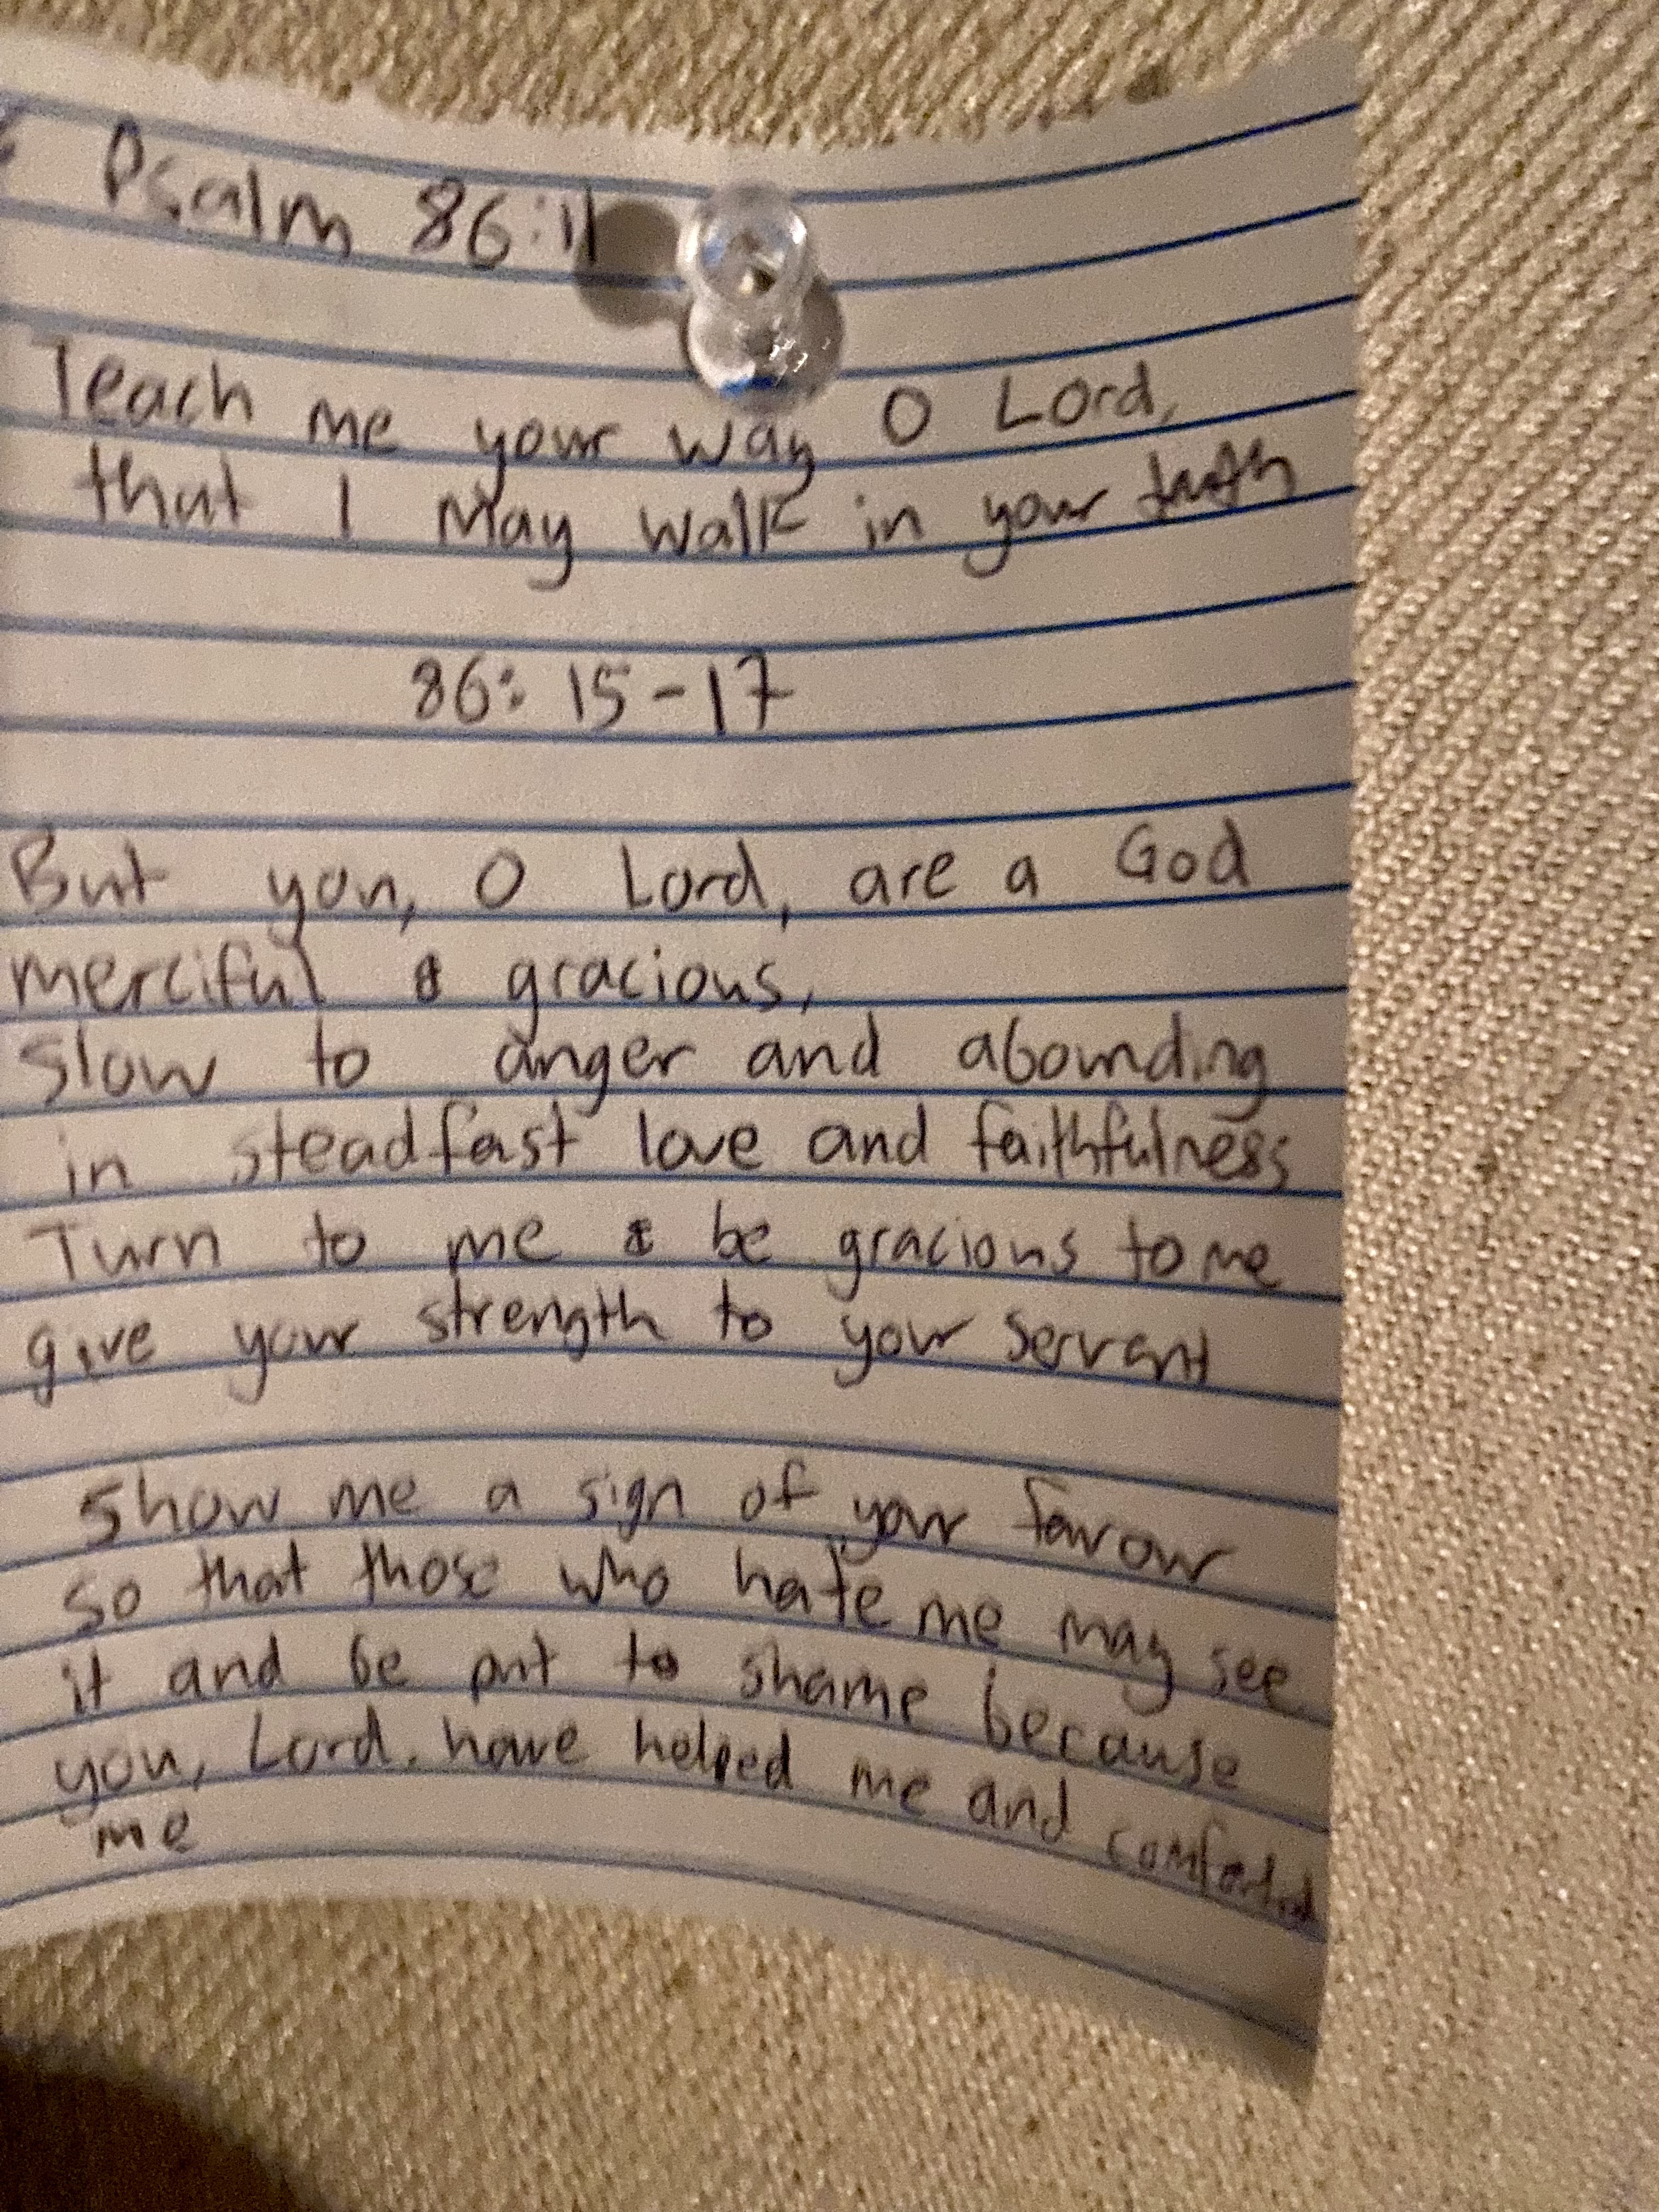 Psalm 86:11
Teach me your way O Lord,
that I may walk in your truth
86: 15-17
But you, O Lord, are a God
merciful & gracious,
slow to anger and abounding
in steadfast love and faithfulness
Turn to me & be gracious to me
give your strength to your servant
Show me a sign of your favour
so that those who hate me may see
it and be put to shame because
you, Lord, have helped me and comforted
me